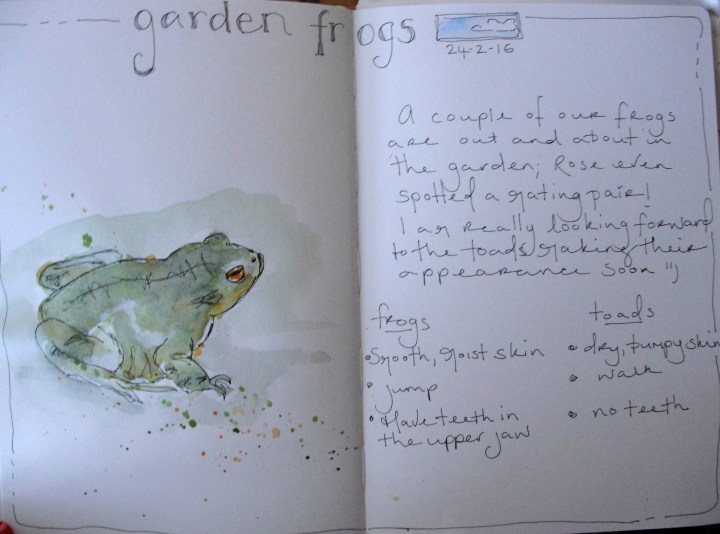 garden frogs
24-2-16
A couple of our frogs
are out and about in
the garden; Rose even
spotted a mating pair!
I am really looking forward
to the toads making their
appearance soon :)
frogs
• Smooth, moist skin
• jump
• Have teeth in
the upper jaw
toads
• dry, bumpy skin
• walk
• no teeth